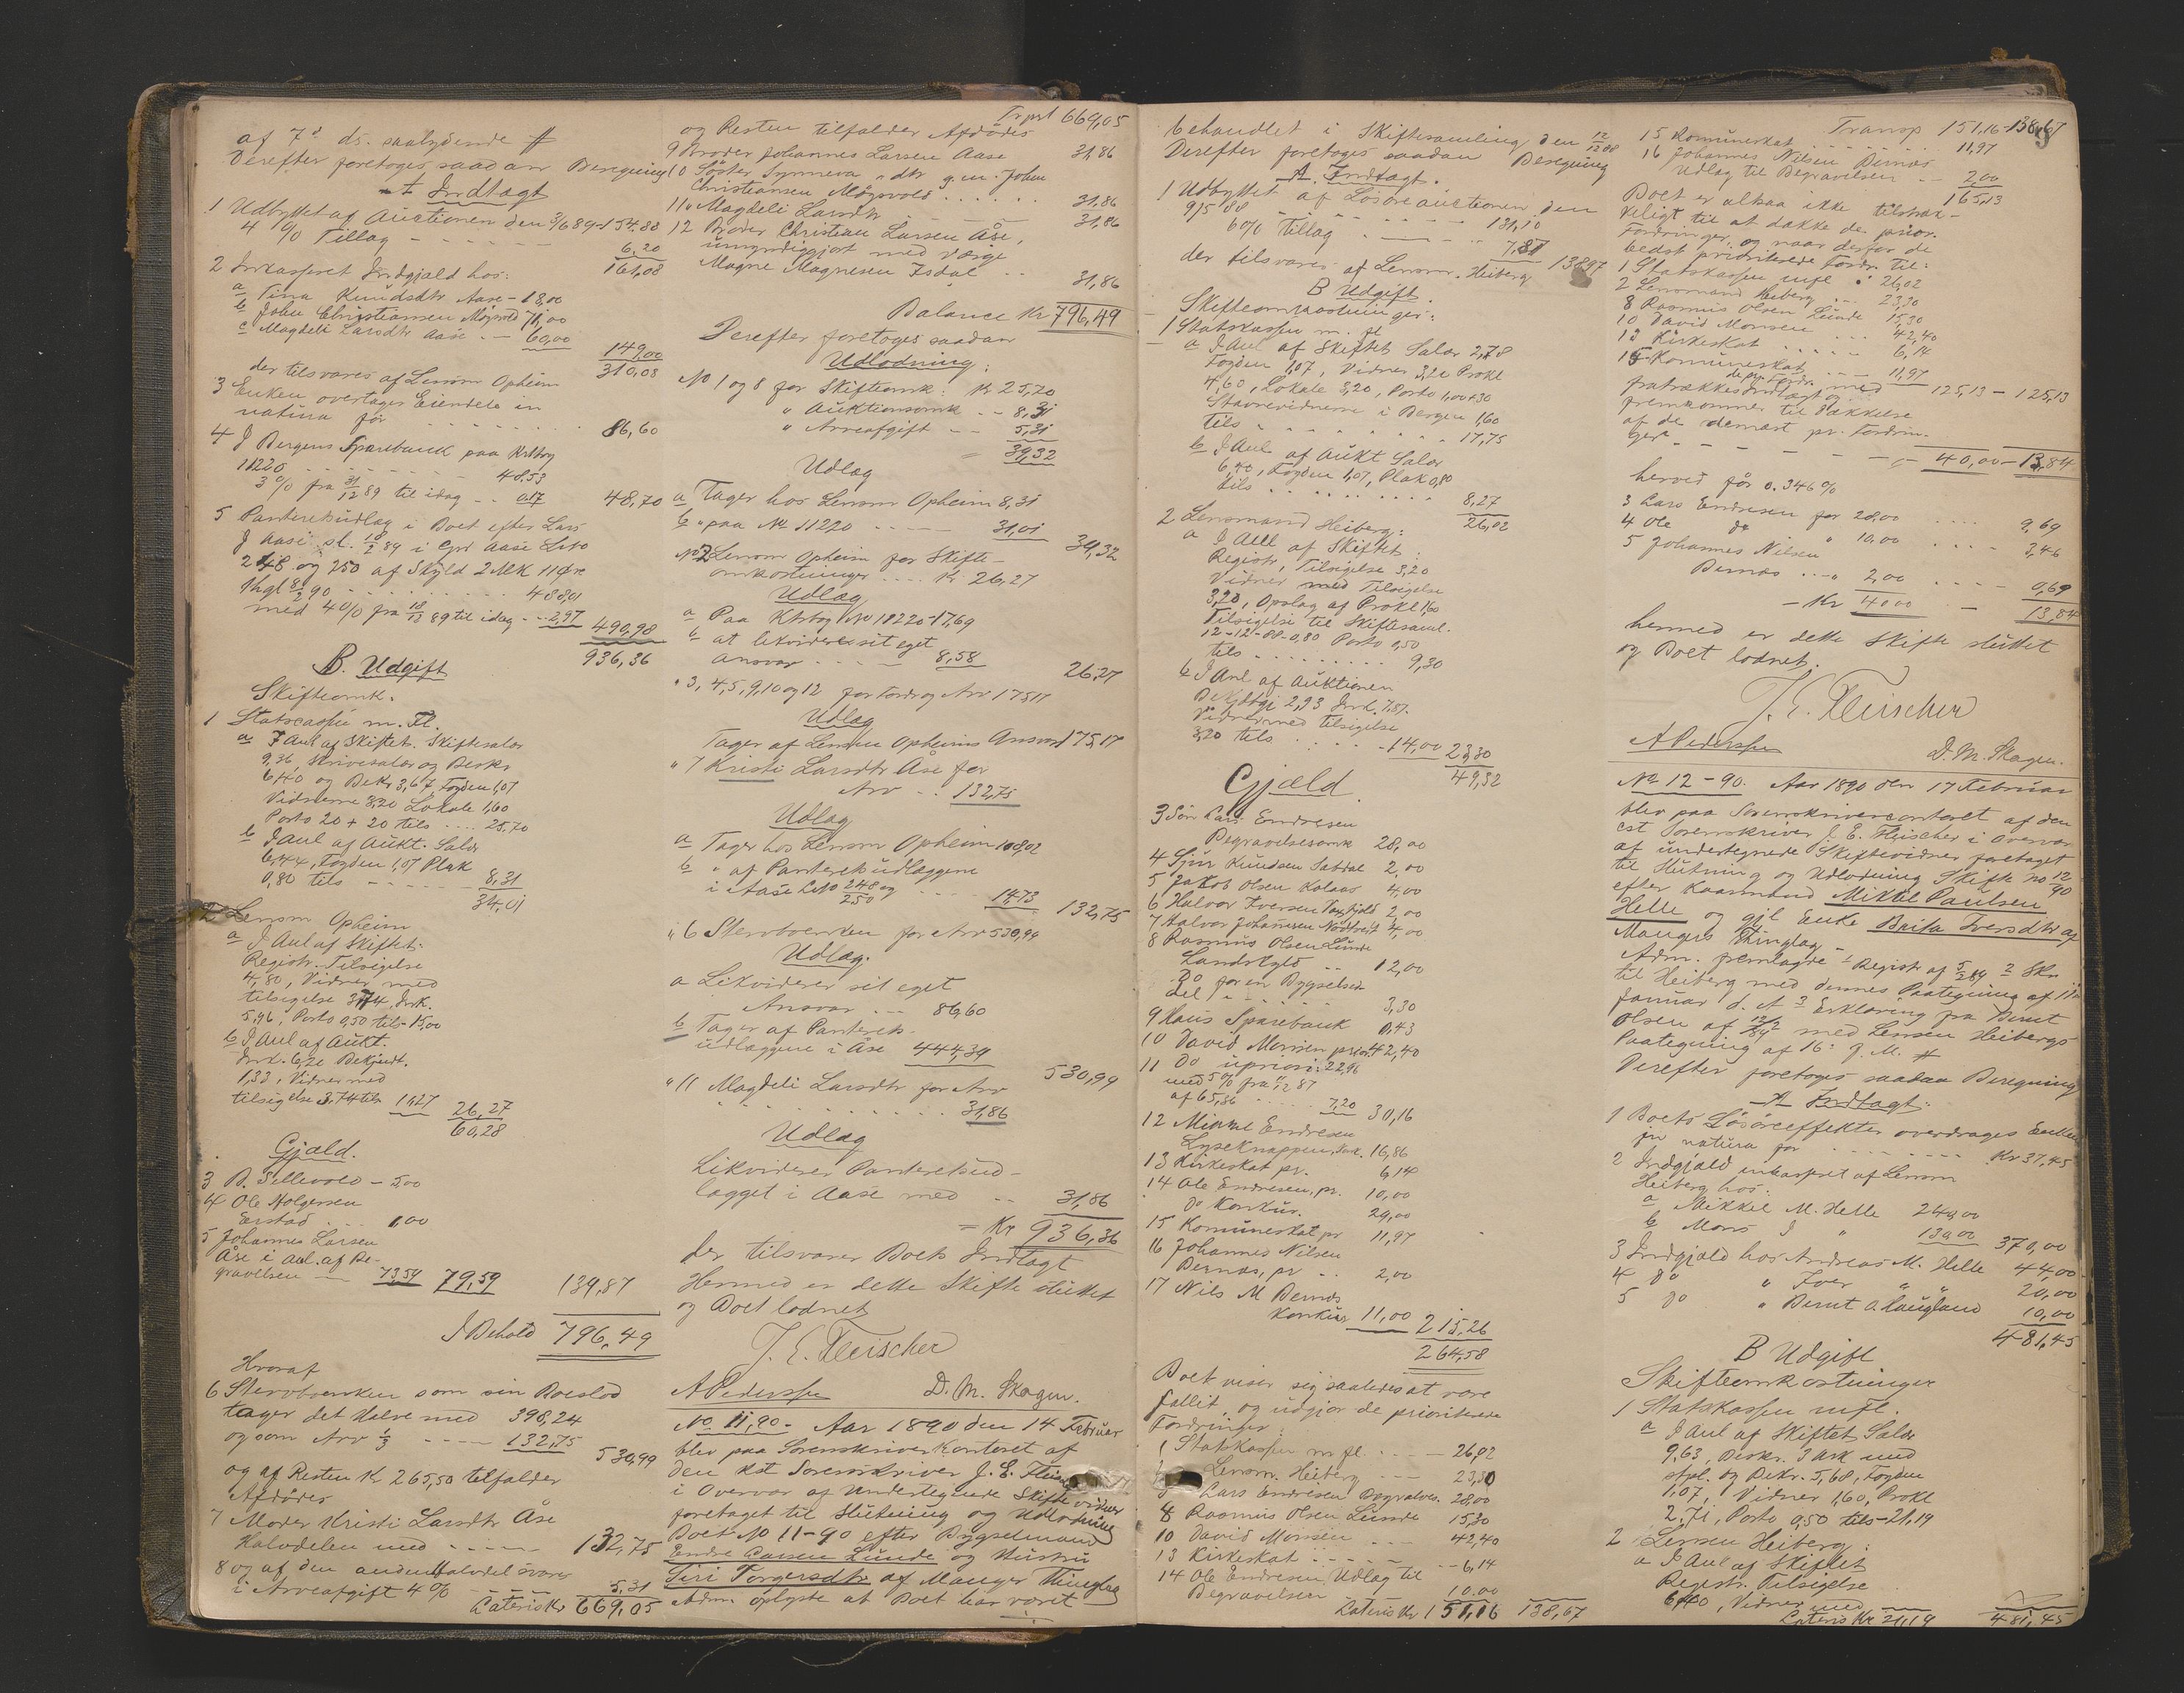 af 7d ds. saalydende #
Derefter foretoges saadan Beregning
A. Indtægt
1 Udbyttet af Auctionen den 3/6 89 - 154.88
4 % Tillæg - - - - - - 6,20
161,08
2 Inkasseret Indgjæld hos:
a Tina Knudsdtr Aase - 18,00
b John Christiansen Mögsvold 71,00
c Magdeli Larsdtr Aase . - 60,00
149,00
der tilsvares af Lensm Opheim 310,08
3 Enken overtager Eiendele in
natura for . . . . . . . . 86,60
4 I Bergens Sparebank paa Ktrbog
11220 . . . . . . . . 48.53
3 % fra 31/12 89 til idag . . 0,17 48,70
5 Panteretsudlæg i Boet efter Lars
J Aase sl. 18/2 89 i Grd Aase Lbno
248 og 250 af Skyld 2 Mk 11 Øre
thgl 8/2 90 . . . . . . . . 488,01
med 4 % fra 18/13 89 til idag - . 2,97 490,98
936,36
B. Udgift
Skifteomk.
1 Statscassen m. Fl.
a I Anl af Skiftet. Skiftesalær
9,36, Skrivesalær og Beskr
6,40 og Bekr 3,67 Fogden 1,07
Vidnerne 3,20 Lokale 1,60
Porto 20 + 20 tils . . . . 25,70
b I Anl af Aukt. Salær
6,44, Fogden 1,07 Plak
0,80 tils - - - - - - 8,31
34,01
2 Lensm Opheim
a I Anl af Skiftet.
Registr. Tilsigelse
4,80, Vidner med
tilsigelse 3,74, Ink.
5,96, Porto 0,50 tils - 15,00
b I Anl af Aukt.
Ink. 6,20 Bekjendt.
1,33, Vidner med
tilsigelse 3,74 tils 11,27 26,27
60,28
Gjæld.
3 B. Sellevold - 5,00
4 Ole Holgersen
Eerstad . . . 1,00
5 Johannes Larsen
Åse i anl. af Be-
gravelsen — 73,59 79,59 139,87
I Behold 796,49
Hvoraf
6 Stervboenken som sin Boeslod
tager det Halve med 398,24
og som Arv 1/3 - - - - 132,75 530,99
og af Resten Kr 265,50 tilfalder
Afdödes
7 Moder Kristi Larsdtr Åse
Halvdelen med - - - - - 132,75
8 og af den anden Halvdel svares
i Arveafgift 4 % - - - - 5,31
Lateris Kr 669,05
Trpst 669,05
og Resten tilfalder Afdödes
9 Broder Johannes Larsen Aase 31,86
10 Söster Synneva " dtr g.m. John
Christiansen Mögsvold . . . . . . 31,86
11 " Magdeli Larsdtr . . - - - 31,86
12 Broder Christian Larsen Åse,
umyndiggjort med Værge
Magne Magnesen Isdal . . 31,86
Balance Kr 796,49
Derefter foretoges saadan
Udlodning:
No 1 og 8 for Skifteomk: Kr 25,70
" Auktionsomk - - 8,31
" Arveafgift - - 5,31
= 39,32
Udlæg
a Tager hos Lensm Opheim 8,31
b " paa No 11220 - - - - 31,01 39,32
No 2 Lensm Opheim for Skifte-
omkostninger . . . . Kr 26,27
Udlæg
a Paa Ktrbog No 11220 - 17,69
b at likvidere sit eget
Ansvar . . . - - 8,58 26,27
" 3, 4, 5, 9, 10 og 12 for Fordr og Arv 175,17
Udlæg
Tager af Lensm Opheims Ansvar 175,17
" 7 Kristi Larsdtr Åse for
Arv . . 132,75
Udlæg
a Tager hos Lensm Opheim 118,02
b " af Panteretsudlæggene
i Aase Lbno 248 og 250 . . . . 14,73 132,75
" 6 Stervboenken for Arv 530,99
Udlæg.
a Likviderer sit eget
Ansvar . . . 86,60
b Tager af Panterets-
udlæggene i Åse 444,39
530,99
" 11 Magdeli Larsdtr for Arv
. . . . . . . . . . . 31,86
Udlæg
Likviderer Panteretsud-
lægget i Aase med - - 31,86
= Kr 936,36
der tilsvarer Boets Indtægt
Hermed er dette Skifte sluttet
og Boet lodnet
J. E. Fleischer
A Pedersen D. M. Skagen.
No 11,90 - Aar 1890 den 14 Februar
blev paa Sorenskriverkontoret af
den kst Sorenskriver J. E. Fleischer
i Overvær af Undertegnede Skiftevidner
foretaget til Slutning og Udlodning
Boet No 11-90 efter Bygselmand
Endre Larsen Lunde og Hustru
Siri Torgersdtr af Manger Thinglag
Adm. oplyste at Boet har været
behandlet i Skiftesamling den 12/12 88
Derefter foretoges saadan Beregning
A. Indtægt.
1 Udbyttet af Lösöreauctionen den
9/5 88 . . . . . . . . 131,10
6 % Tillæg . — . - - - 7,87
der tilsvares af Lensm. Heiberg 138,97
B Udgift.
Skifteomkostninger:
1 Statskassen m. fl
a I Anl af Skiftet Salær 2,78
Fogden 1,07, Vidner 3,20 Prokl
4,60, Lokale 3,20, Porto 1,00 + 30
Stavnevidnerne i Bergen 1,60
tils . . . . . . . . . 17,75
b I Anl af Aukt Salær
6,40, Fogden 1,07, Plak 0,80
tils . . . . . . . . 8,27
26,02
2 Lensmand Heiberg:
a I Anl af Skiftet:
Registr, Tilsigelse 3,20
Vidner med Tilsigelse
3,20, Opslag af Prokl 1,60
Tilsigelse til Skiftesaml.
12-12-88 - 0,80 Porto 0,50
tils . . . . . . . . . . 9,30
b I Anl af Auktionen
Bekjdtgj 2,93 Ink. 7,87.
Vidner med tilsigelse
3,20 tils . . . . . - 14,00 23,30
49,32
Gjæld.
3 Sön Lars Endresen
Begravelsesomk 28,00
4 Sjur Knudsen Sætdal 2,00
5 Jakob Olsen Kolaas 4,00
6 Halvor Iversen 2,00
7 Halvor Johannesen 4,00
8 Rasmus Olsen Lunde
Landskyld . . 12,00
Do for en Bygselsed-
del " - - - - - - 3,30
9 Haus Sparebank 0,43
10 David Monsen prior. 42,40
11 Do uprior: 22,96
med 5 % fra 87
af 65,36 . . . . . 7,20 30,16
12 Mikael Endresen
Lyseknappen 16,86
13 Kirkeskat pr. 6,14
14 Ole Endresen, pr. 10,00
Do Konkur. 29,00
15 Komuneskat pr 11,97
16 Johannes Nilsen
Bernæs, pr . . 2,00
17 Nils M Bernæs
Konkur 11,00 215,26
264,58
Boet viser sig saaledes at være
fallit, og udgjör de prioriterede
Fordringer:
1 Statskassen m fl. . . — 26,02
Lensm. Heiberg - - - 23,30
Lars Endresen Begravelsen 28,00
8 Rasmus Olsen Lunde 15,30
10 David Monsen . . - - 42,40
13 Kirkeskat - - - - - - 6,14
14 Ole Endresen Udlæg til
Begravelsen 10.00
Lateris Kr 151,16 138,97
9
Transp 151,16 - 138,97
15 Komuneskat . . . . . . 11,97
16 Johannes Nilsen Bernæs
Udlæg til Begravelsen - - 2,00
165,13
Boet er altsaa ikke tilstræk-
keligt til at dække de prior.
Fordringer, og naar derfor de
bedst prioriterede Fordr. til:
1 Statskassen mfl " 26,02
2 Lensmand Heiberg - - 23,30
8 Rasmus Olsen Lunde 15,30
10 David Monsen . . . 42,40
13 Kirkeskat . . . . . 6,14
15 Komuneskat - - - - 11,97
fratrækkes Indtægt og med 125,13 - 125,13
fremkommer til Dækkelse
af de dernæst pr. Fordrin-
ger - - - - - - - - 40,00 - 13,84
herved får 0.346 %
3 Lars Endresen for 28,00 . . . . 9,69
4 Ole do " 10,00 . . . - 3,46
5 Johannes Nilsen
Bernæs . . . " 2,00 . . . . - 0,69
- Kr 40,00 - 13,84
hermed er dette Skifte sluttet
og Boet lodnet.
J. E. Fleischer
A Pedersen D. M. Skagen.
No 12-90. Aar 1890 den 17 Februar
blev paa Sorenskrivercontoret af den
cst Sorenskriver J. E. Fleischer i Overvær
af undertegnede Skiftevidner foretaget
til Slutning og Udlodning Skifte no 12/90
efter Kaarmand Mikkel Paulsen
Helle og gjl Enke Brita Iversdtr af
Mangers Thinglag -
Adm. fremlagde 1 Registr af 5/2 89 2 Skr
til Heiberg med dennes Paategning af 11te
Januar d. A 3 Erklæring fra Bernt
Olsen af 12/12 89 med Lensm Heibergs
Paategning af 16: f. M. #
Derefter foretoges saadan Beregning
A Indtægt.
1 Boets Lösöreeffekter overdrages Enken
in natura for . . . . - - - - Kr 37,45
2 Indgjæld inkasseret af Lensm
Heiberg hos:
a Mikkel M. Helle 240,00
b Mons J " 130,00 370,00
3 Indgjæld hos Andreas M. Helle 44,00
4 do " Iver " " 20,00
5 do " Bernt O Haugland 10,00
481,45
B Udgift
Skifteomkostninger
1 Statskassen mfl.
a I Anl af Skiftet Salær
9,63, Beskr. 3 Ark med
stpl. og Bekr. 5,68, Fogden
1,07, Vidner 1,60, Prokl
2,71, Porto 0,50 tils - 21,19
2 Lensm Heiberg:
a I Anl af Skiftet
Registr. Tilsigelse
6,40, Vidner med
Lateris Kr 21,19 481,45